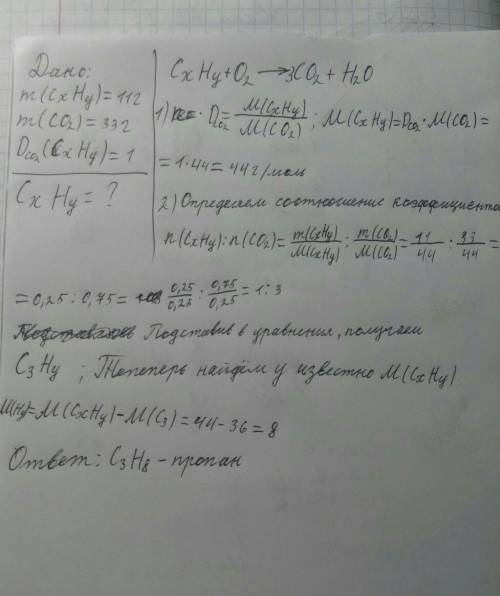 Дано:
m(CxHy)=11г
m(CO2)=33г
Dco2(CxHy)=1
CxHy=?
CxHy+O2→3CO2+H2O
1) Dco2=M(CxHy)/M(CO2); M(CxHy)=Dco2·M(CO2)=
=1·44=44г/моль
2) Определяем соотношение коэффициентов
n(CxHy):n(CO2)=m(CxHy)/M(CxHy):m(CO2)/M(CO2)=11/44:33/44=
=0,25:0,75=0,25/0,25:0,75/0,25=1:3
Подставив в уравнения, получаем
C3Hy; Тепеперь найдём y известно M(CxHy)
M(Hy)=M(CxHy)-M(C3)=44-36=8
Ответ: C3H8-пропан